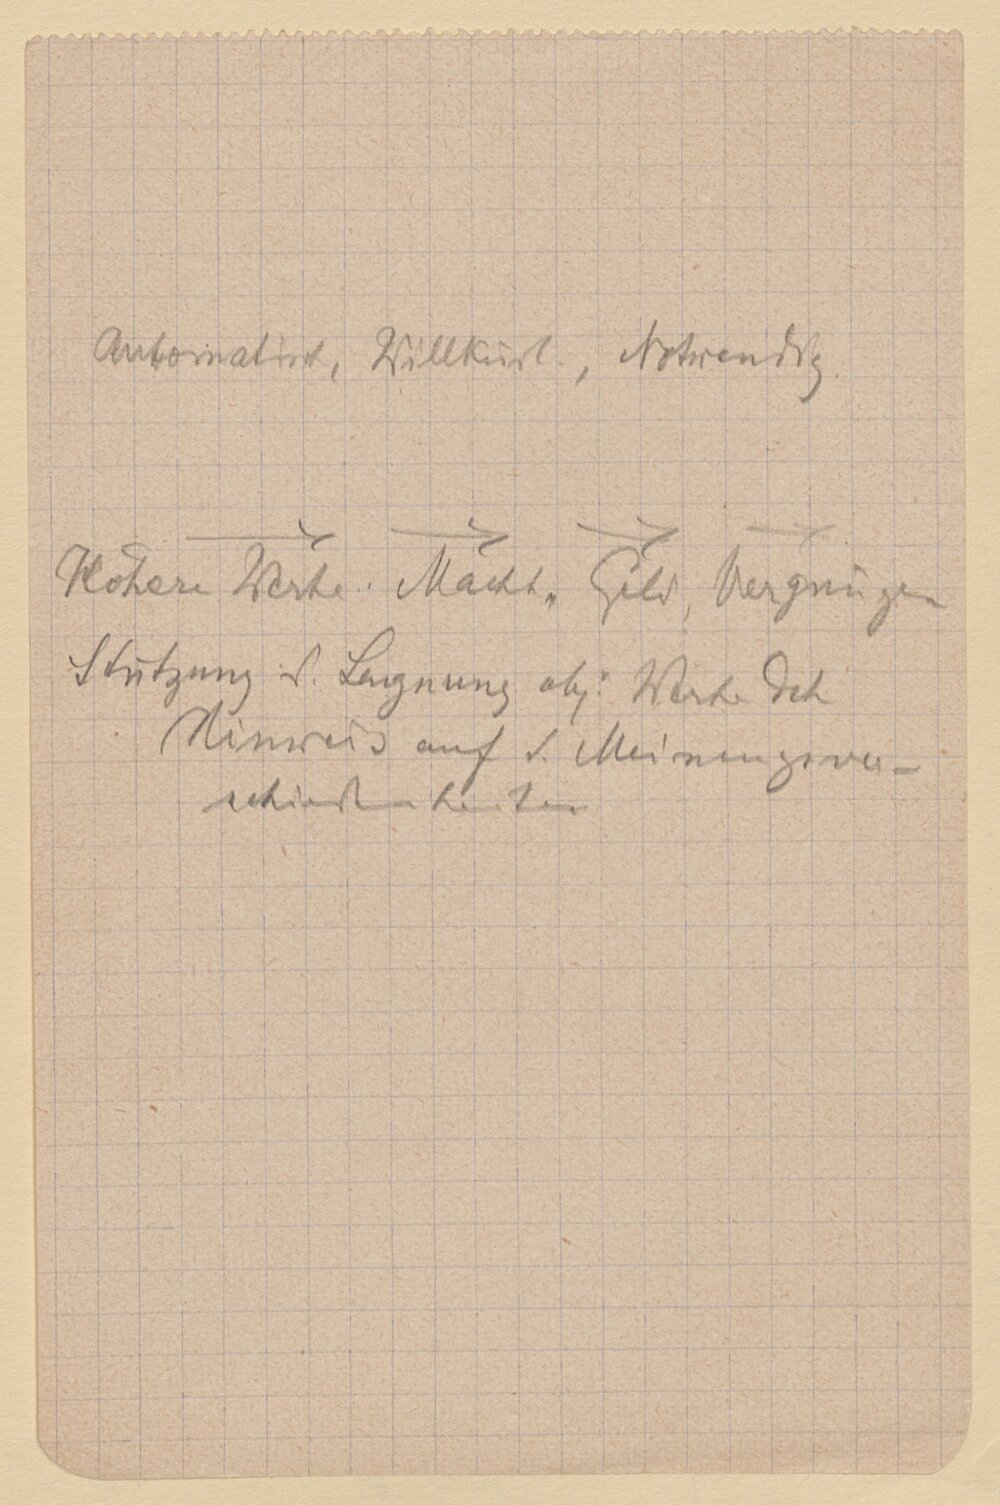 Automatisch, Willkürl., Notwendig.
Höhere Werte. Macht, Geld, Vergnügen
Stützung d. Leugnung obj. Werte dch
Hinweis auf d. Meinungsver-
schiedenheiten